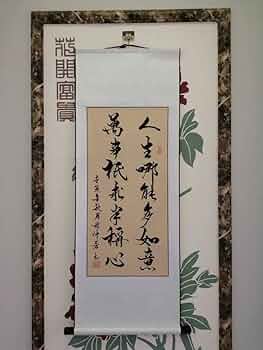 人生哪能多如意
萬事祇求半稱心
花開富貴